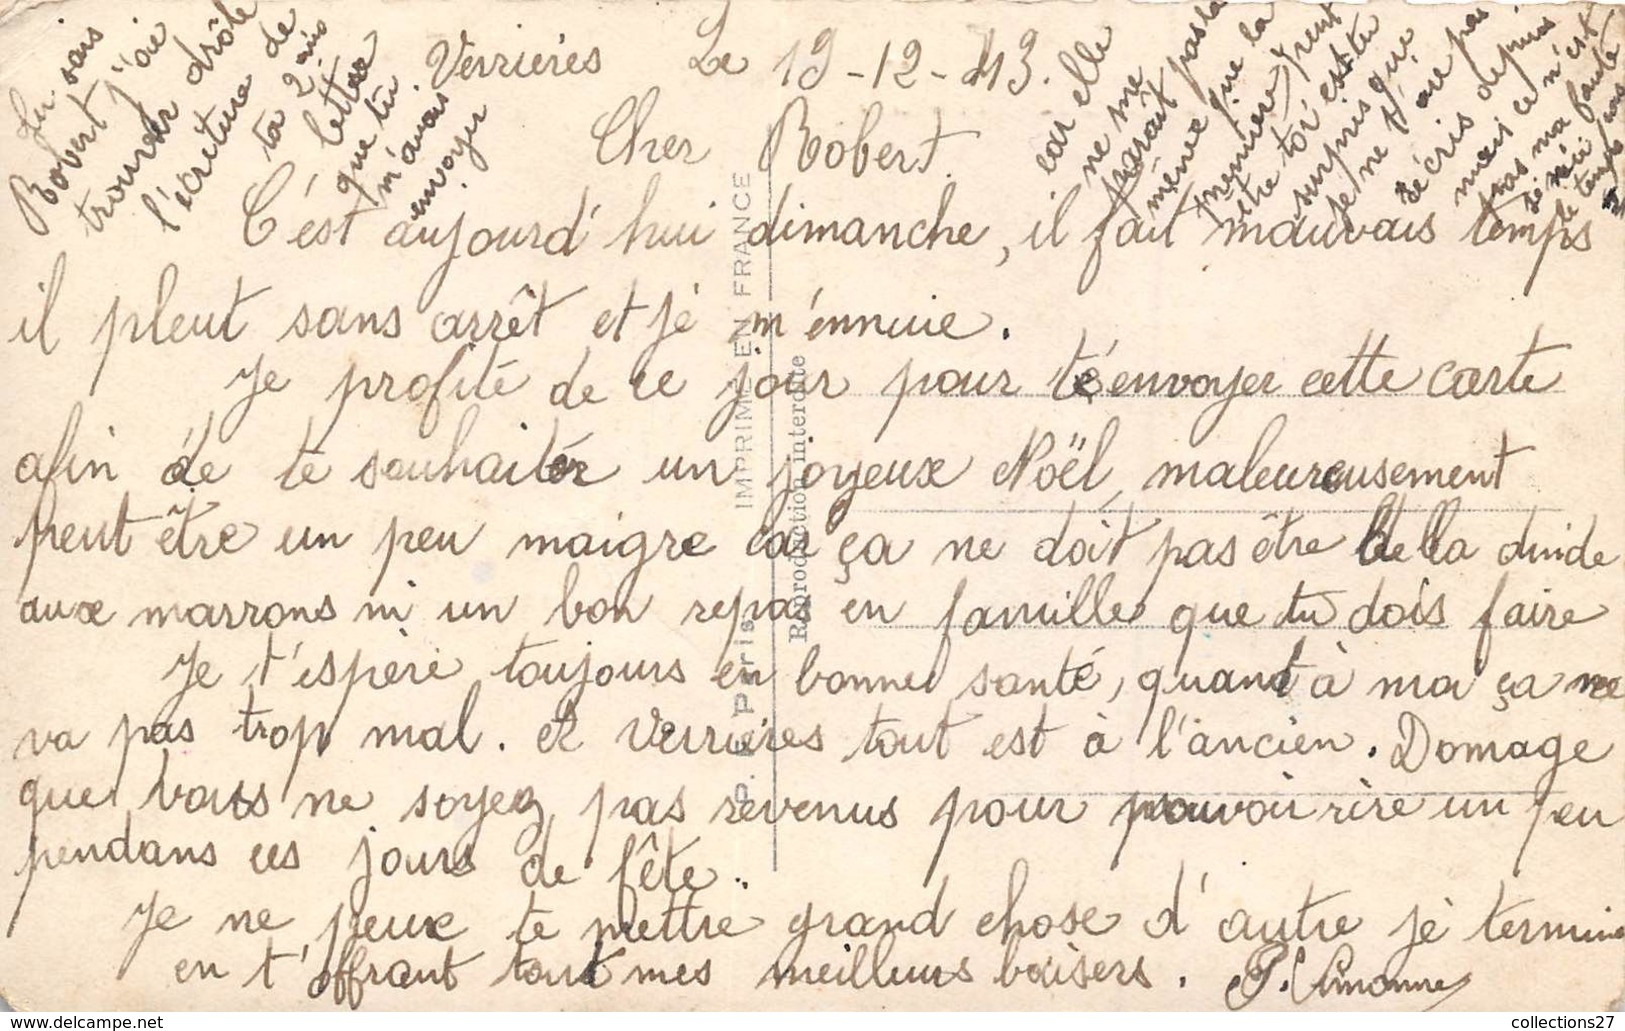 Verrieres Le 19-12-43.
Cher Robert.
C'est aujourd'hui dimanche, il fait mauvais temps
il pleut sans arrêt et je m'ennuie.
Je profite de ce jour pour t'envoyer cette carte
afin de te souhaiter un joyeux Noël, maleureusement
peut être un peu maigre car ça ne doit pas être de la dinde
aux marrons ni un bon repas en famille que tu dois faire
Je t'espère toujours en bonne santé, quand à moi ça ne
va pas trop mal. et Verrieres tout est à l'ancien. Domage
que vous ne soyez pas revenus pour pouvoir rire un peu
pendans ces jours de fête.
Je ne peux te mettre grand chose d'autre je termine
en t'offrant tout mes meilleurs baisers. P.
Tu sais
Robert j'aie
trouver drôle
l'écriture de
ta 2
lettre
que tu
m'avais
envoyer
car elle
ne me
parait pas la
même que la
première peut
être toi es tu
surpris que
je ne t'are pas
écris depuis
mais ce n'est
pas ma faute
si
le temps
P. Paris IMPRIMÉ EN FRANCE
Reproduction interdite
collections27